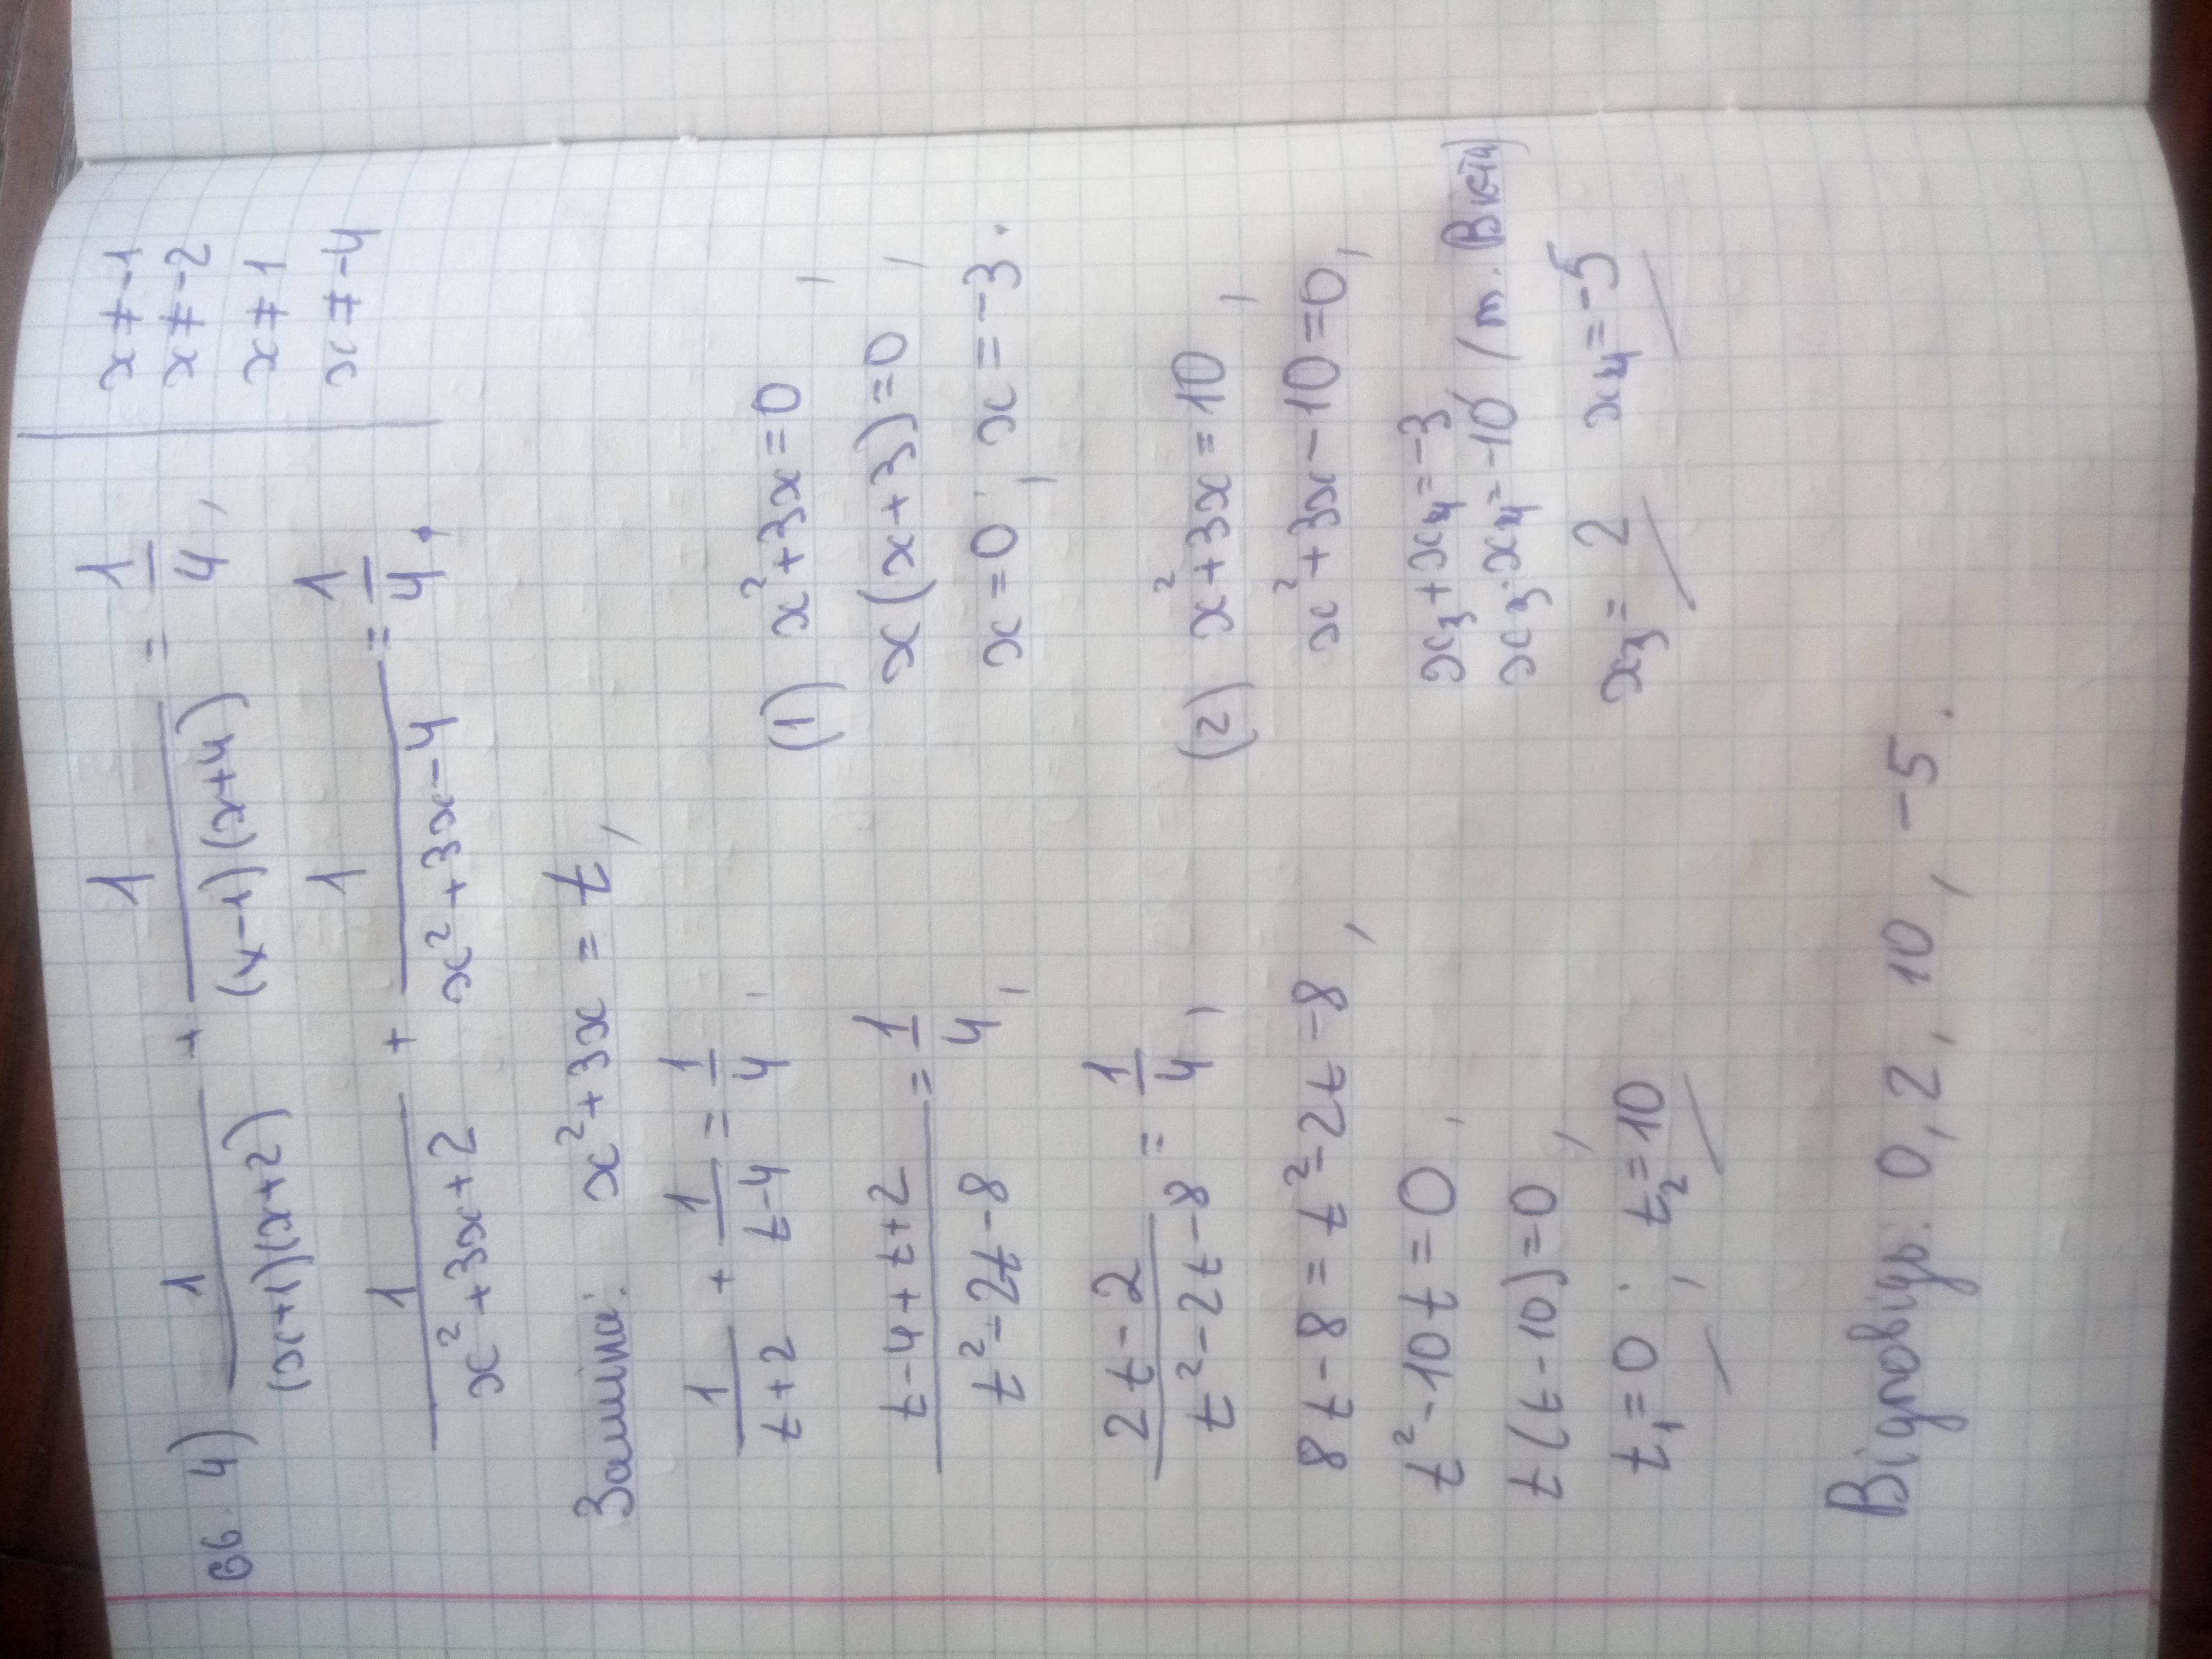 36. 4) 1/((x+1)(x+2)) + 1/((x-1)(x+4)) = 1/4,
x ≠ -1
x ≠ -2
x ≠ 1
x ≠ -4
1/(x²+3x+2) + 1/(x²+3x-4) = 1/4,
Заміна: x²+3x = t,
1/(t+2) + 1/(t-4) = 1/4,
(t-4+t+2)/(t²-2t-8) = 1/4,
(2t-2)/(t²-2t-8) = 1/4,
8t-8 = t²-2t-8,
t²-10t=0,
t(t-10)=0,
t₁=0; t₂=10
(1) x²+3x=0,
x(x+3)=0,
x=0; x=-3.
(2) x²+3x=10,
x²+3x-10=0,
x₃+x₄=-3
x₃·x₄=-10 (т. Вієта)
x₃=2 x₄=-5
Відповідь: 0, 2, 10, -5.